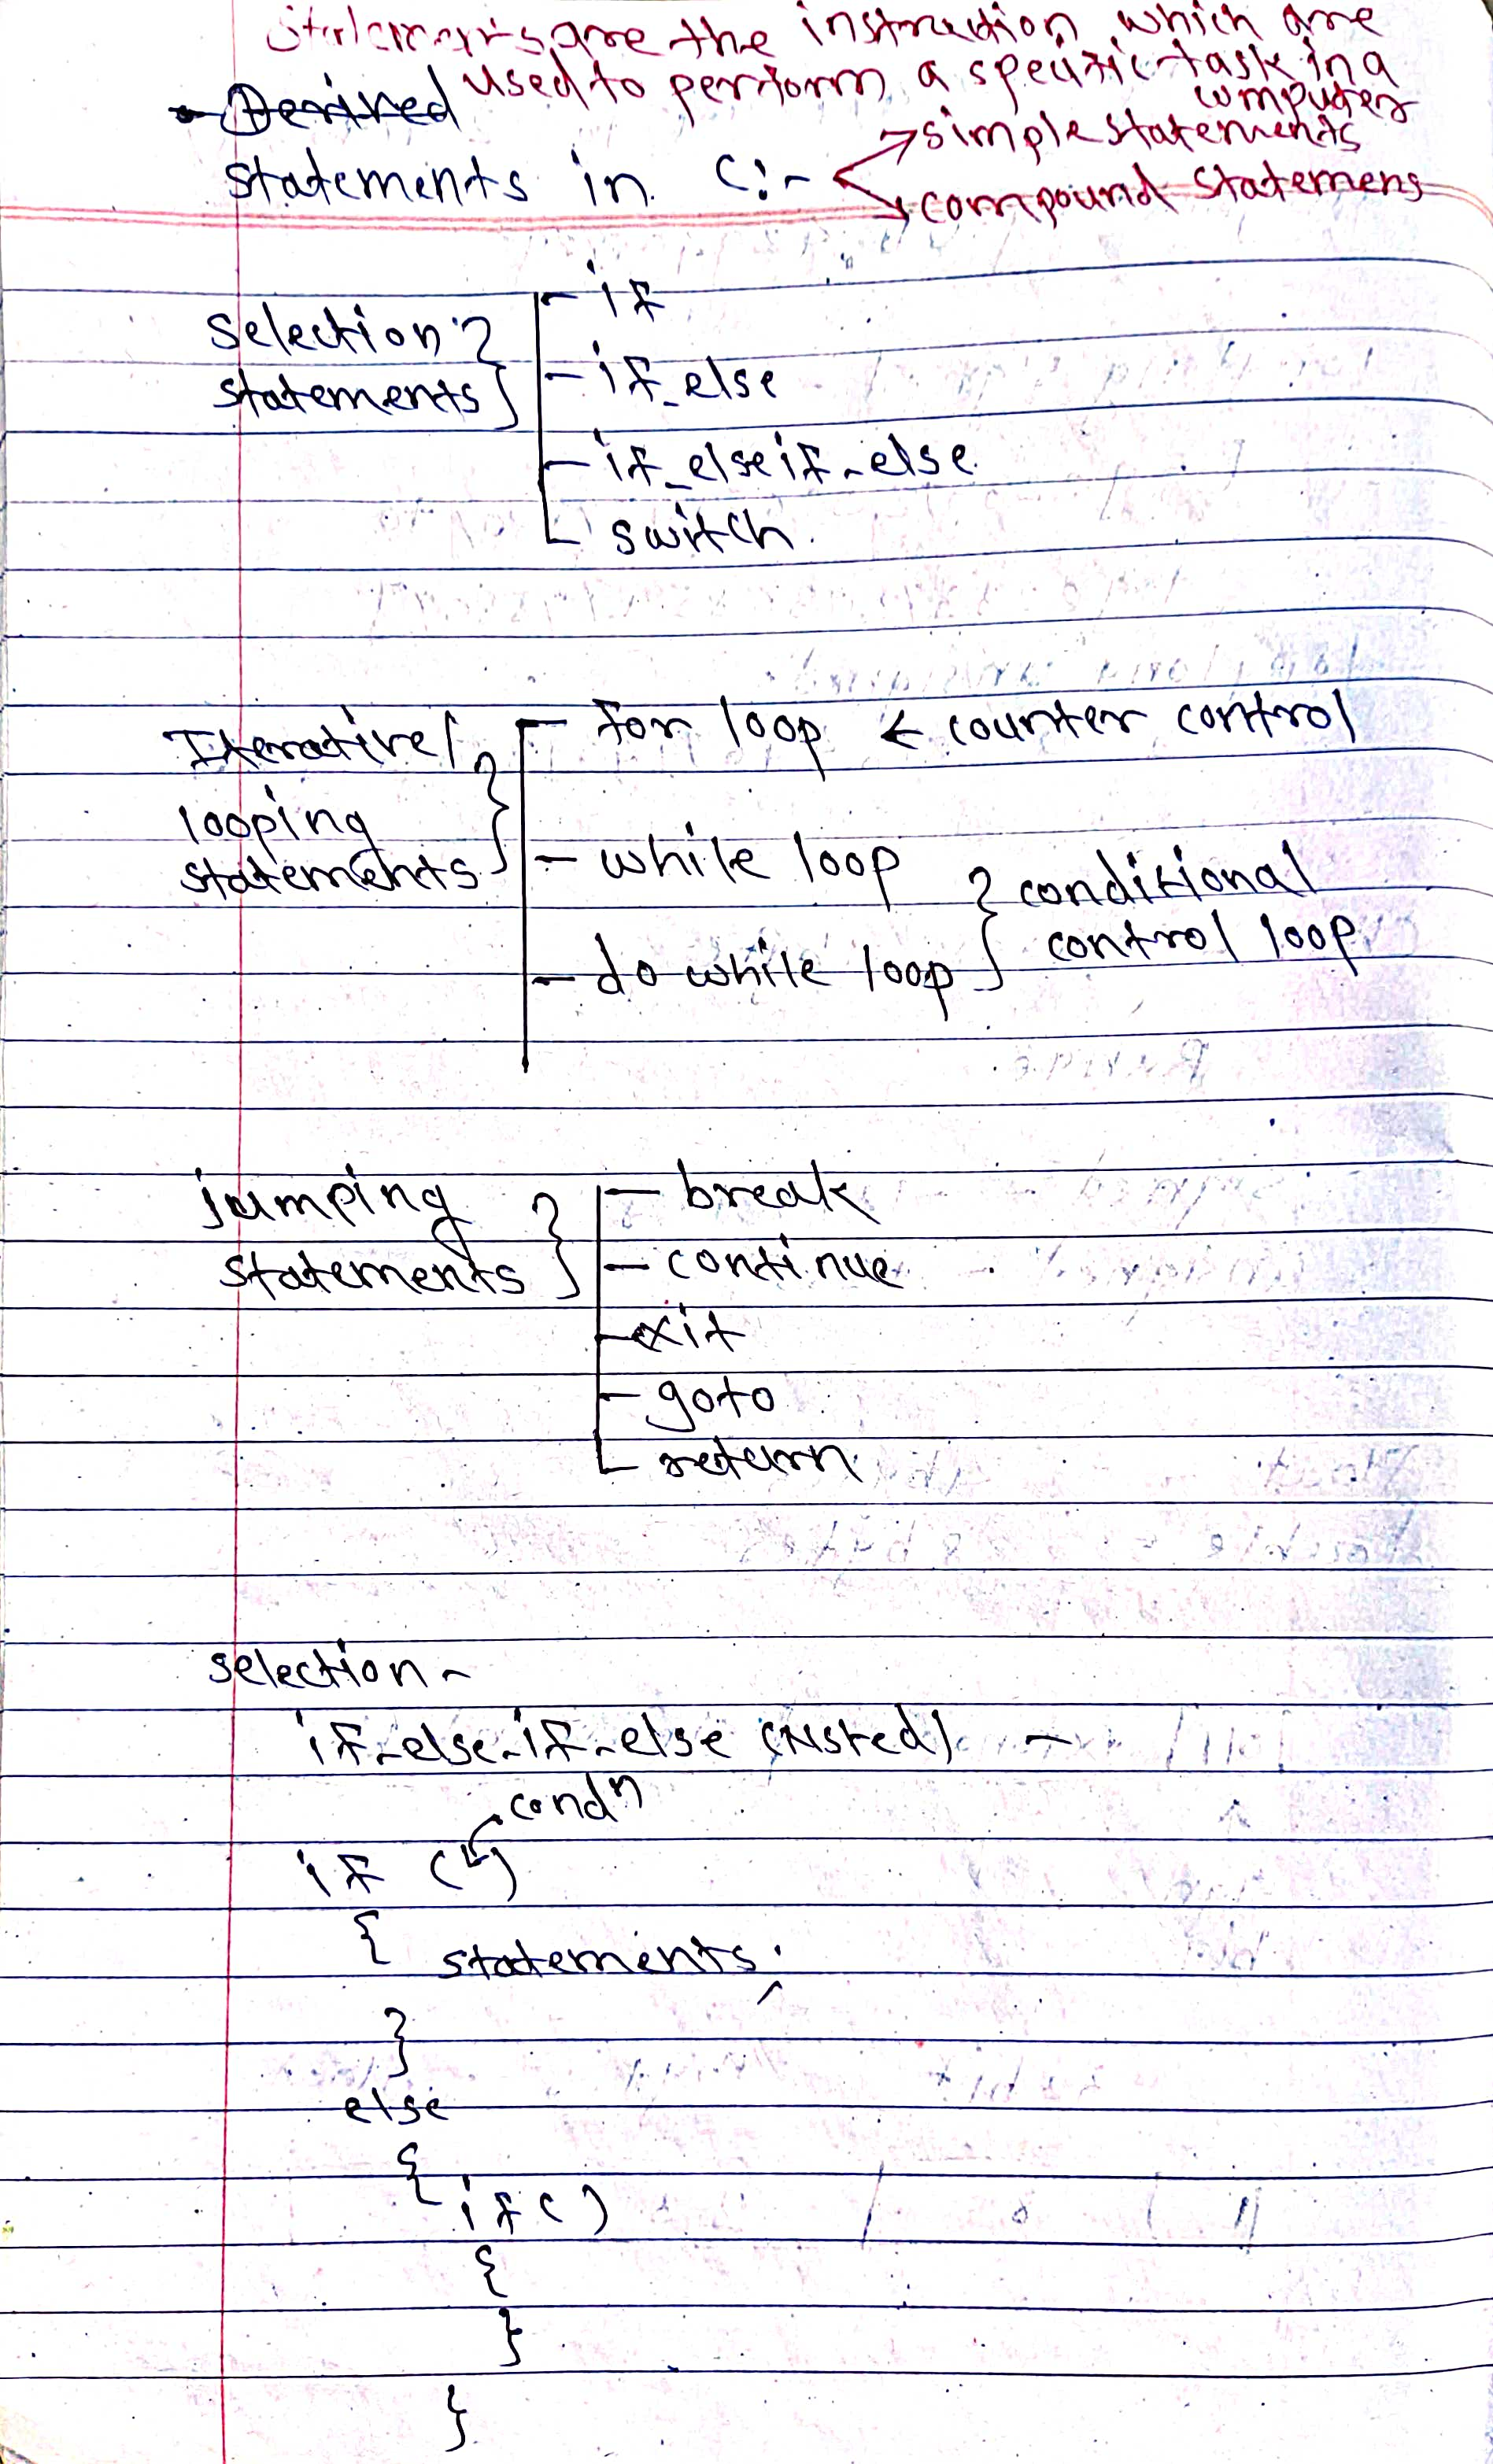 statements are the instruction which are
used to perform a specific task in a
computer
Derived
simple statements
statements in C:-
compound statemens
selection
statements
if
if_else
if_elseif-else
switch.
Iterative/
looping
statements
for loop ← counter control
while loop
do while loop
conditional
control loop
jumping
statements
break
continue
exit
goto
return
selection -
if-else-if-else (Nsted) -
condn
if ( )
{ statements;
}
else
{
if ( )
{
}
}